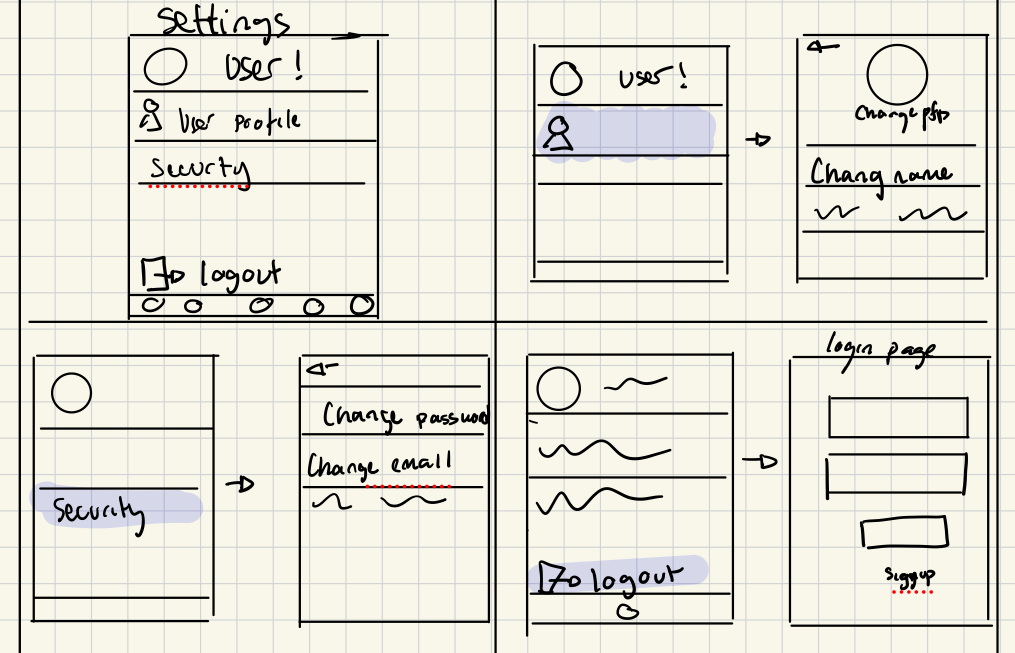 Settings
User!
User profile
Security
logout
user!
Change pfp
Chang name
Security
Change password
Change email
logout
login page
Siggup